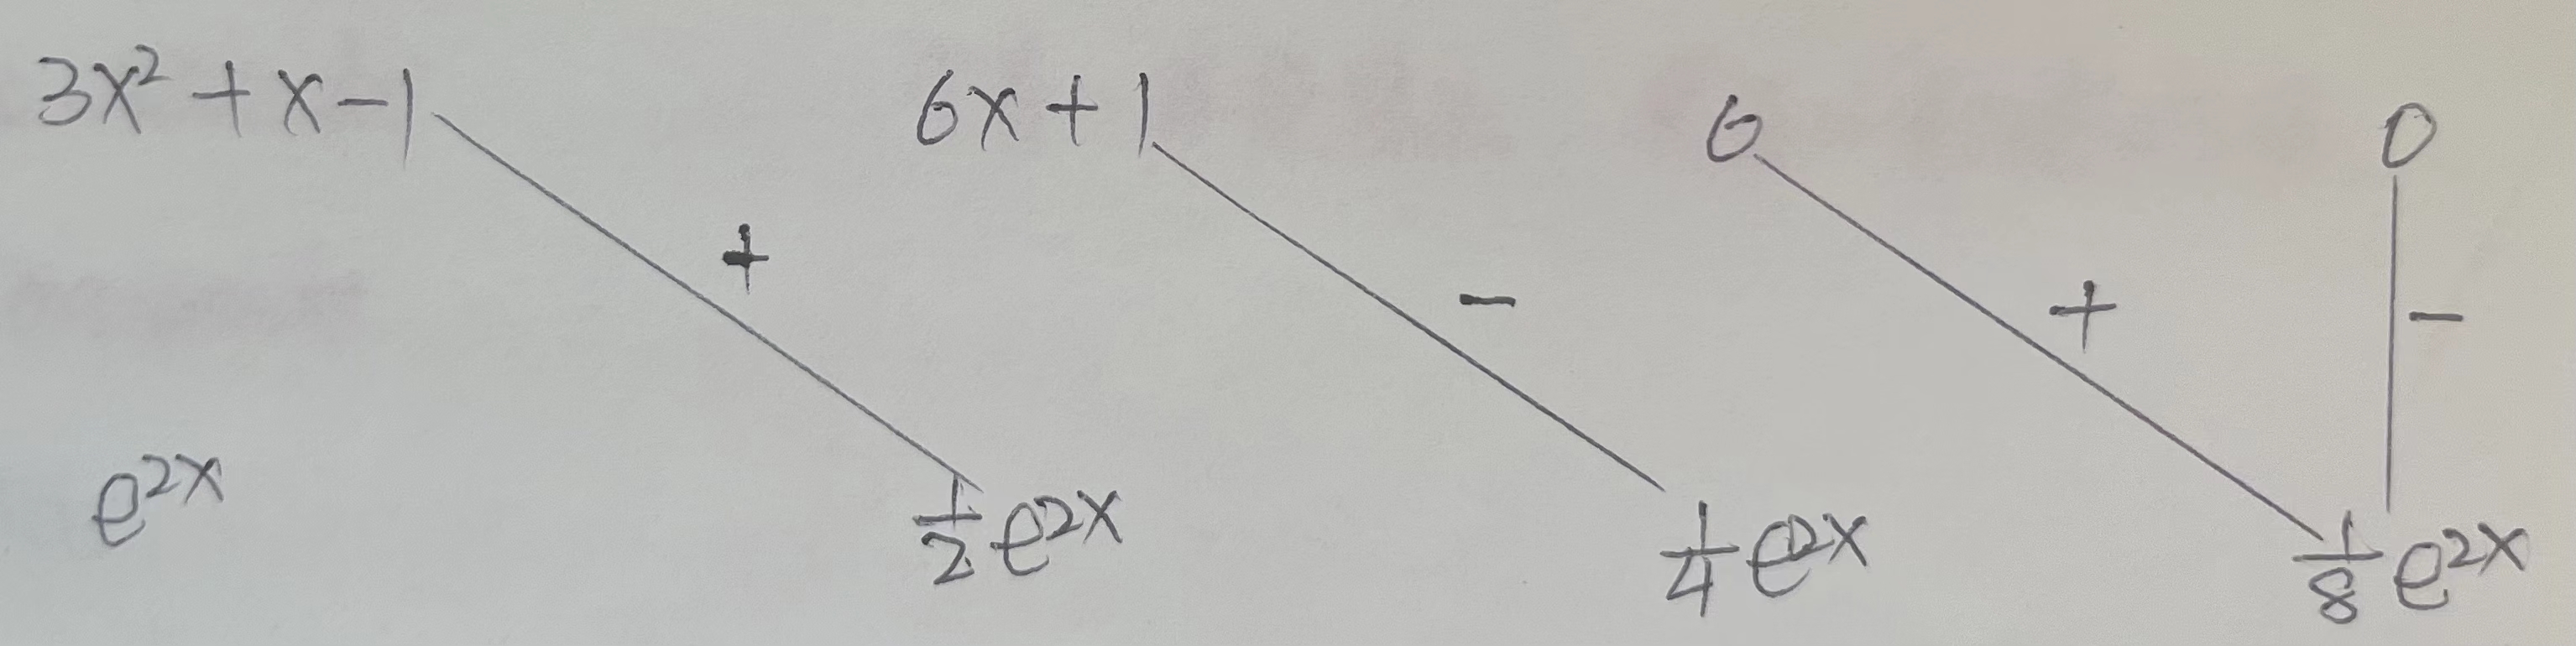 3x² + x - 1 6x + 1 6 0
+ - + -
e^{2x} \frac{1}{2}e^{2x} \frac{1}{4}e^{2x} \frac{1}{8}e^{2x}